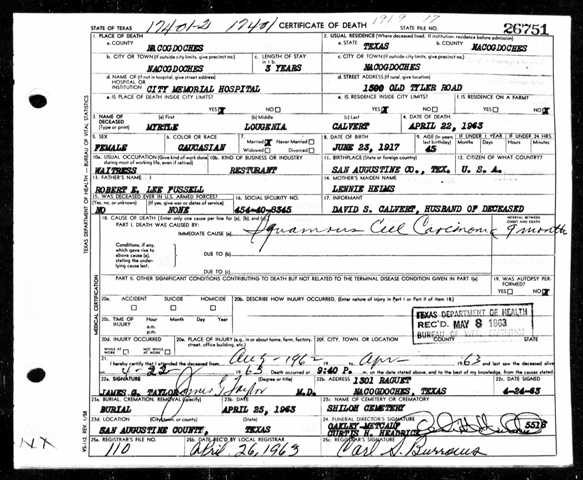 1919 17
17401-2 17401
STATE OF TEXAS CERTIFICATE OF DEATH STATE FILE NO. 26751
1. PLACE OF DEATH 2. USUAL RESIDENCE (Where deceased lived. If institution: residence before admission)
a. COUNTY NACOGDOCHES a. STATE TEXAS b. COUNTY NACOGDOCHES
b. CITY OR TOWN (If outside city limits, give precinct no.) c. LENGTH OF STAY in 1 b. c. CITY OR TOWN (If outside city limits, give precinct no.)
NACOGDOCHES 3 YEARS NACOGDOCHES
d. NAME OF (If not in hospital, give street address) HOSPITAL OR INSTITUTION CITY MEMORIAL HOSPITAL d. STREET ADDRESS (If rural, give location) 1500 OLD TYLER ROAD
e. IS PLACE OF DEATH INSIDE CITY LIMITS? YES X NO e. IS RESIDENCE INSIDE CITY LIMITS? YES X NO f. IS RESIDENCE ON A FARM? YES NO X
3. NAME OF DECEASED (Type or print) (a) First (b) Middle (c) Last 4. DATE OF DEATH
MYRTLE LOUGENIA CALVERT APRIL 22, 1963
5. SEX 6. COLOR OR RACE 7. Married X Never Married Widowed Divorced 8. DATE OF BIRTH 9. AGE (In years last birthday) IF UNDER 1 YEAR Months Days IF UNDER 24 HRS. Hours Min.
FEMALE CAUCASIAN JUNE 23, 1917 45
10a. USUAL OCCUPATION (Give kind of work done during most of working life, even if retired) 10b. KIND OF BUSINESS OR INDUSTRY 11. BIRTHPLACE (State or foreign country) 12. CITIZEN OF WHAT COUNTRY?
WAITRESS RESTURANT SAN AUGUSTINE CO., TEX. U. S. A.
13. FATHER'S NAME 14. MOTHER'S MAIDEN NAME
ROBERT E. LEE FUSSELL LENNIE HELMS
15. WAS DECEASED EVER IN U.S. ARMED FORCES? (Yes, no, or unknown) (If yes, give war or dates of service) 16. SOCIAL SECURITY NO. 17. INFORMANT
NO NONE 454-40-8345 DAVID S. CALVERT, HUSBAND OF DECEASED
18. CAUSE OF DEATH [Enter only one cause per line for (a), (b), and (c).] INTERVAL BETWEEN ONSET AND DEATH
PART I. DEATH WAS CAUSED BY:
IMMEDIATE CAUSE (a) Squamous Cell Carcinoma 9 month
Conditions, if any, which gave rise to above cause (a), stating the underlying cause last.
DUE TO (b)
DUE TO (c)
PART II. OTHER SIGNIFICANT CONDITIONS CONTRIBUTING TO DEATH BUT NOT RELATED TO THE TERMINAL DISEASE CONDITION GIVEN IN PART I(a) 19. WAS AUTOPSY PERFORMED? YES NO X
20a. ACCIDENT SUICIDE HOMICIDE 20b. DESCRIBE HOW INJURY OCCURRED. (Enter nature of injury in Part I or Part II of item 18.)
20c. TIME OF INJURY Hour a.m. p.m. Month Day Year
TEXAS DEPARTMENT OF HEALTH
REC'D MAY 8 1963
20d. INJURY OCCURRED WHILE AT WORK NOT WHILE AT WORK 20e. PLACE OF INJURY (e.g., in or about home, farm, factory, street, office building, etc.) 20f. CITY, TOWN, OR LOCATION COUNTY STATE
21. I hereby certify that I attended the deceased from Aug 1962 Apr 1963 and last saw the deceased alive
4-22 1963 Death occurred at 9:40 P. m. on the date stated above, and to the best of my knowledge, from the causes stated.
22a. SIGNATURE (Degree or title) 22b. ADDRESS 1301 RAGUET 22c. DATE SIGNED
JAMES G. TAYLOR James G. Taylor M.D. NACOGDOCHES, TEXAS 4-24-63
23a. BURIAL, CREMATION, REMOVAL (Specify) 23b. DATE 23c. NAME OF CEMETERY OR CREMATORY
BURIAL APRIL 25, 1963 SHILOH CEMETERY
23d. LOCATION (City, town, or county) (State) 24. FUNERAL DIRECTOR'S SIGNATURE
SAN AUGUSTINE COUNTY, TEXAS OAKLEY-METCALF CURTIS H. HEADRICK 5518
25a. REGISTRAR'S FILE NO. 25b. DATE REC'D BY LOCAL REGISTRAR 25c. REGISTRAR'S SIGNATURE
110 April 26, 1963 Carl S. Burrows
TEXAS DEPARTMENT OF HEALTH — BUREAU OF VITAL STATISTICS
MEDICAL CERTIFICATION